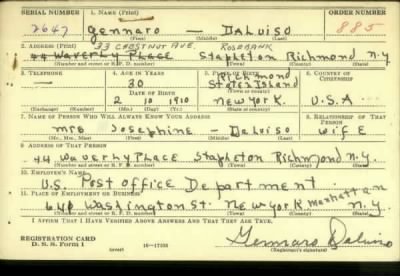 SERIAL NUMBER 1. NAME (Print) ORDER NUMBER
2647 Gennaro — DaLuiso 885
(First) (Middle) (Last)
2. ADDRESS (Print) 33 CHESTNUT AVE. ROSEBANK
44 Waverly Place Stapleton Richmond N.Y.
(Number and street or R. F. D. number) (Town) (County) (State)
3. TELEPHONE 4. AGE IN YEARS 5. PLACE OF BIRTH 6. COUNTRY OF CITIZENSHIP
— 30 Richmond Staten Island
DATE OF BIRTH
2 10 1910 New York. U.S.A
(Exchange) (Number) (Mo.) (Day) (Yr.) (State or country)
7. NAME OF PERSON WHO WILL ALWAYS KNOW YOUR ADDRESS 8. RELATIONSHIP OF THAT PERSON
Mrs Josephine — DaLuiso wife
(Mr., Mrs., Miss) (First) (Middle) (Last)
9. ADDRESS OF THAT PERSON
44 Waverly Place Stapleton Richmond N.Y.
(Number and street or R. F. D. number) (Town) (County) (State)
10. EMPLOYER'S NAME
U.S. Post Office Department
11. PLACE OF EMPLOYMENT OR BUSINESS
640 Washington St. New York Manhattan N.Y.
(Number and street or R. F. D. number) (Town) (County) (State)
I AFFIRM THAT I HAVE VERIFIED ABOVE ANSWERS AND THAT THEY ARE TRUE.
REGISTRATION CARD
D. S. S. Form 1 (over) 16—17105
Gennaro Daluiso
(Registrant's signature)